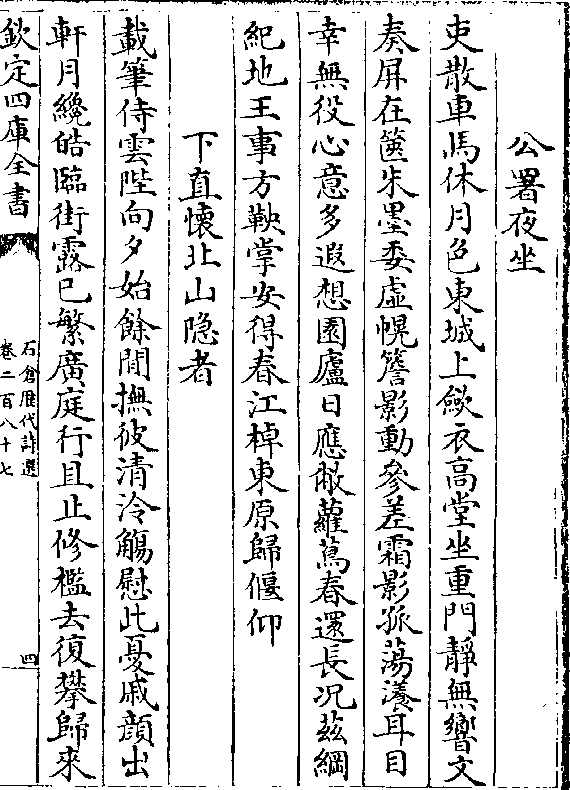 公署夜坐
吏散車馬休月色東城上歛衣高堂坐重門靜無響文
奏屏在篋朱墨委虛幌簷影動參差霜影孤蕩瀁耳目
幸無役心意多遐想園廬日應敝蘿蔦春還長况兹綱
紀地王事方鞅掌安得春江棹東原歸偃仰
下直懷北山隐者
載筆侍雲陛向夕始餘閒撫彼清泠觴慰此憂戚顔出
軒月纔皓臨街露已繁廣庭行且止修檻去復攀歸來
欽定四庫全書
石倉歷代詩選
卷二百八十七
四